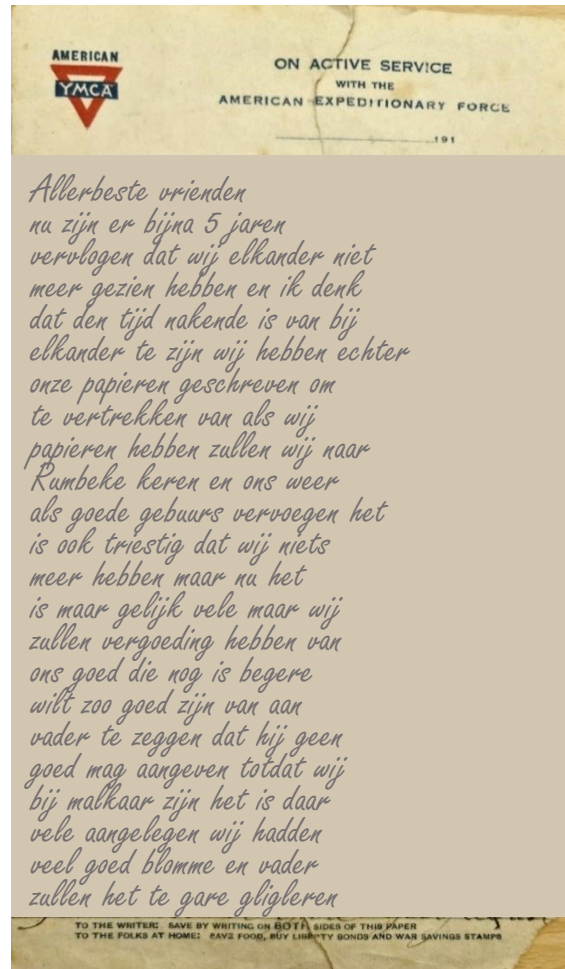 AMERICAN
YMCA
ON ACTIVE SERVICE
WITH THE
AMERICAN EXPEDITIONARY FORCE
191
Allerbeste vrienden
nu zijn er bijna 5 jaren
vervlogen dat wij elkander niet
meer gezien hebben en ik denk
dat den tijd nakende is van bij
elkander te zijn wij hebben echter
onze papieren geschreven om
te vertrekken van als wij
papieren hebben zullen wij naar
Rumbeke keren en ons weer
als goede gebuurs vervoegen het
is ook triestig dat wij niets
meer hebben maar nu het
is maar gelijk vele maar wij
zullen vergoeding hebben van
ons goed die nog is begere
wilt zoo goed zijn van aan
vader te zeggen dat hij geen
goed mag aangeven totdat wij
bij malkaar zijn het is daar
vele aangelegen wij hadden
veel goed blomme en vader
zullen het te gare gligleren
TO THE WRITER: SAVE BY WRITING ON BOTH SIDES OF THIS PAPER
TO THE FOLKS AT HOME: SAVE FOOD, BUY LIBERTY BONDS AND WAR SAVINGS STAMPS